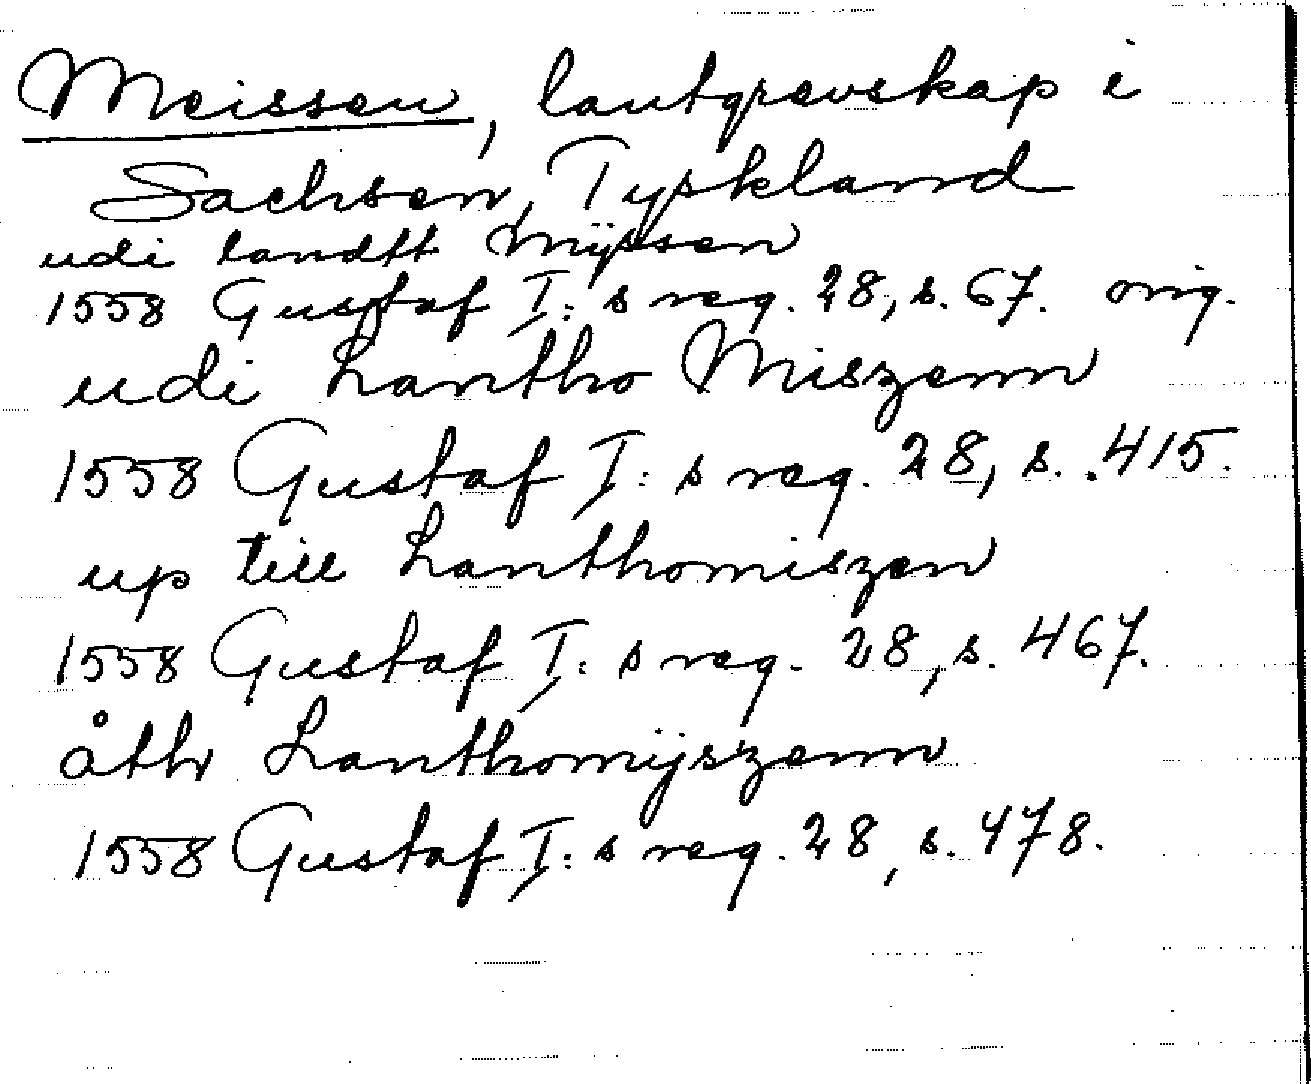 Meissen, lantgrevskap i
Sachsen, Tyskland
udi landtt Mÿssen
1558 Gustaf I:s reg. 28, s. 67. orig.
udi Lantho Miszenn
1558 Gustaf I:s reg. 28, s. 415.
up till Lanthomiszen
1558 Gustaf I:s reg. 28, s. 467.
åthr Lanthomÿszenn
1558 Gustaf I:s reg. 28, s. 478.